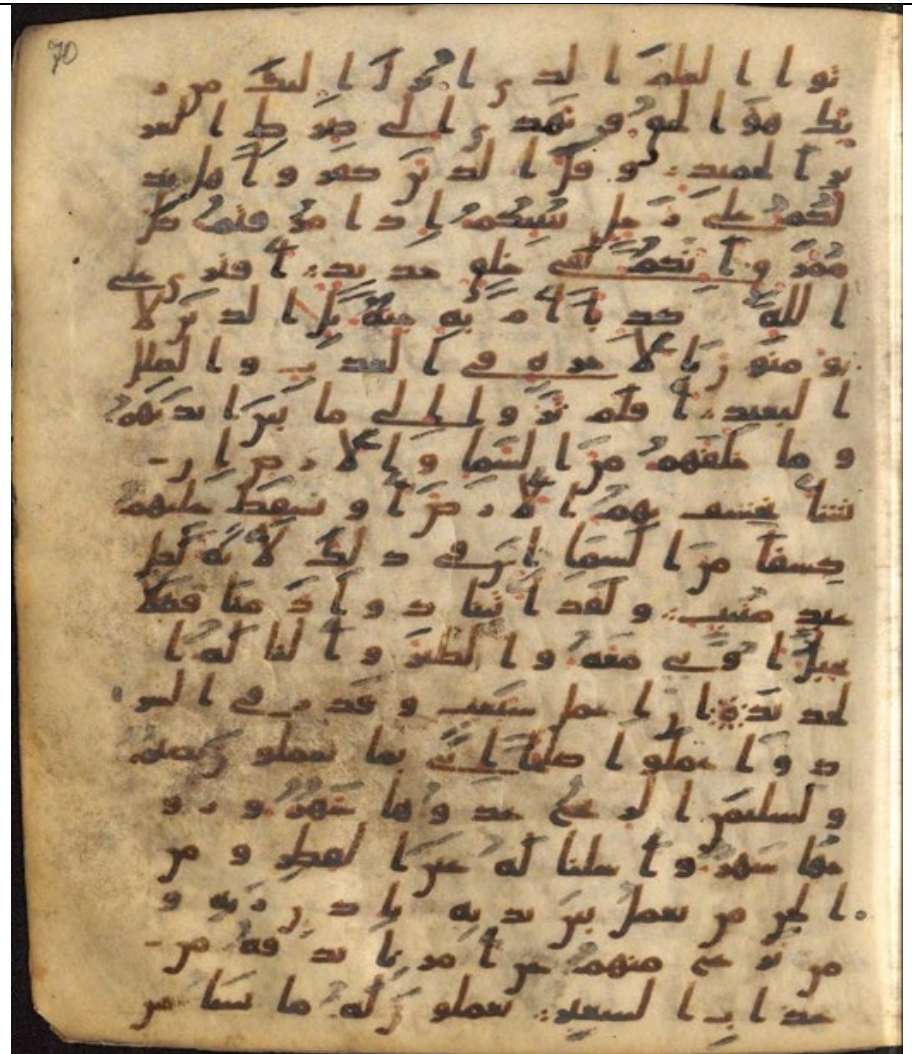 توا العلم الذي انزل اليك من ر
بك هو الحق ويهدي الى صرط العز
يز الحميد وقال الذين كفروا هل ند
لكم على رجل ينبيكم اذا مزقتم كل
ممزق انكم لفي خلق جديد افترى على
الله كذبا ام به جنة بل الذين لا
يومنون بالاخرة في العذاب والضلل
البعيد افلم يروا الى ما بين ايديهم
وما خلفهم من السما والارض ان
نشا نخسف بهم الارض او نسقط عليهم
كسفا من السما ان في ذلك لاية لكل
عبد منيب ولقد اتينا داود منا فضلا
يجبال اوبي معه والطير والنا له ا
لحديد ان اعمل سبغت وقدر في السر
د واعملوا صلحا اني بما تعملون بصير
ولسليمن الريح غدوها شهر ورو
حها شهر واسلنا له عين القطر ومن
الجن من يعمل بين يديه باذن ربه و
من يزغ منهم عن امرنا نذقه من
عذاب السعير يعملون له ما يشا من